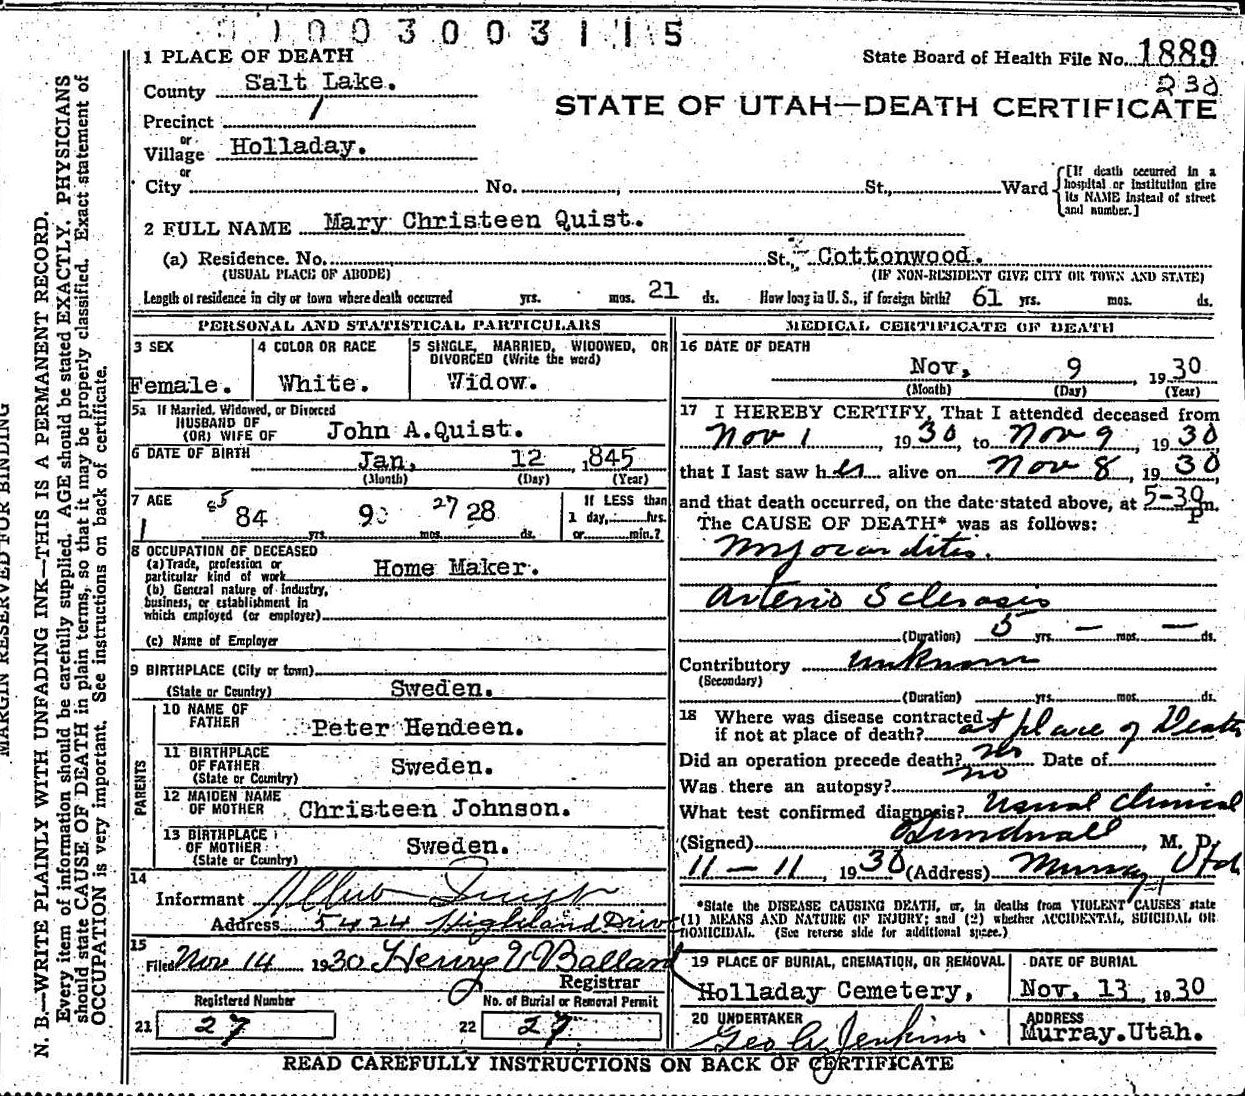 1003003115
1 PLACE OF DEATH
State Board of Health File No. 1889
230
County Salt Lake.
STATE OF UTAH—DEATH CERTIFICATE
Precinct
or
Village Holladay.
or
City No. , St., Ward
[If death occurred in a hospital or institution give its NAME instead of street and number.]
2 FULL NAME Mary Christeen Quist.
(a) Residence. No. St., Cottonwood.
(USUAL PLACE OF ABODE) (IF NON-RESIDENT GIVE CITY OR TOWN AND STATE)
Length of residence in city or town where death occurred yrs. mos. 21 ds. How long in U. S., if foreign birth? 61 yrs. mos. ds.
PERSONAL AND STATISTICAL PARTICULARS
3 SEX
Female.
4 COLOR OR RACE
White.
5 SINGLE, MARRIED, WIDOWED, OR DIVORCED (Write the word)
Widow.
5a If Married, Widowed, or Divorced
HUSBAND OF
(OR) WIFE OF John A.Quist.
6 DATE OF BIRTH Jan, 12 , 1845
(Month) (Day) (Year)
7 AGE 85 84 yrs. 9 mos. 27 28 ds.
If LESS than
1 day, hrs.
or min.?
8 OCCUPATION OF DECEASED
(a) Trade, profession or
particular kind of work Home Maker.
(b) General nature of Industry,
business, or establishment in
which employed (or employer)
(c) Name of Employer
9 BIRTHPLACE (City or town)
(State or Country) Sweden.
PARENTS
10 NAME OF
FATHER Peter Hendeen.
11 BIRTHPLACE
OF FATHER Sweden.
(State or Country)
12 MAIDEN NAME
OF MOTHER Christeen Johnson.
13 BIRTHPLACE
OF MOTHER Sweden.
(State or Country)
14
Informant Quist
Address 5424 Highland Drive
15
Filed Nov 14 1930 Henry V Balland
Registrar
Registered Number
21 27
No. of Burial or Removal Permit
22 27
MEDICAL CERTIFICATE OF DEATH
16 DATE OF DEATH
Nov, 9 , 1930
(Month) (Day) (Year)
17 I HEREBY CERTIFY, That I attended deceased from
Nov 1 , 1930, to Nov 9 , 1930
that I last saw her alive on Nov 8 , 1930,
and that death occurred, on the date stated above, at 5-30 P m.
The CAUSE OF DEATH* was as follows:
Myocarditis.
Arterio Sclerosis
(Duration) 5 yrs. — mos. — ds.
Contributory unknown
(Secondary)
(Duration) yrs. mos. ds.
18 Where was disease contracted
if not at place of death? at place of Death
Did an operation precede death? no Date of
Was there an autopsy? no
What test confirmed diagnosis? Usual Clinical
(Signed) , M. D.
11 – 11 , 1930 (Address) Murray, Utah
*State the DISEASE CAUSING DEATH, or, in deaths from VIOLENT CAUSES state
(1) MEANS AND NATURE OF INJURY; and (2) whether ACCIDENTAL, SUICIDAL OR
HOMICIDAL. (See reverse side for additional space.)
19 PLACE OF BURIAL, CREMATION, OR REMOVAL
Holladay Cemetery,
DATE OF BURIAL
Nov, 13 , 1930
20 UNDERTAKER
Geo A Jenkins.
ADDRESS
Murray.Utah.
READ CAREFULLY INSTRUCTIONS ON BACK OF CERTIFICATE
MARGIN RESERVED FOR BINDING
N. B.—WRITE PLAINLY WITH UNFADING INK—THIS IS A PERMANENT RECORD.
Every item of information should be carefully supplied. AGE should be stated EXACTLY. PHYSICIANS
should state CAUSE OF DEATH in plain terms, so that it may be properly classified. Exact statement of
OCCUPATION is very important. See instructions on back of certificate.